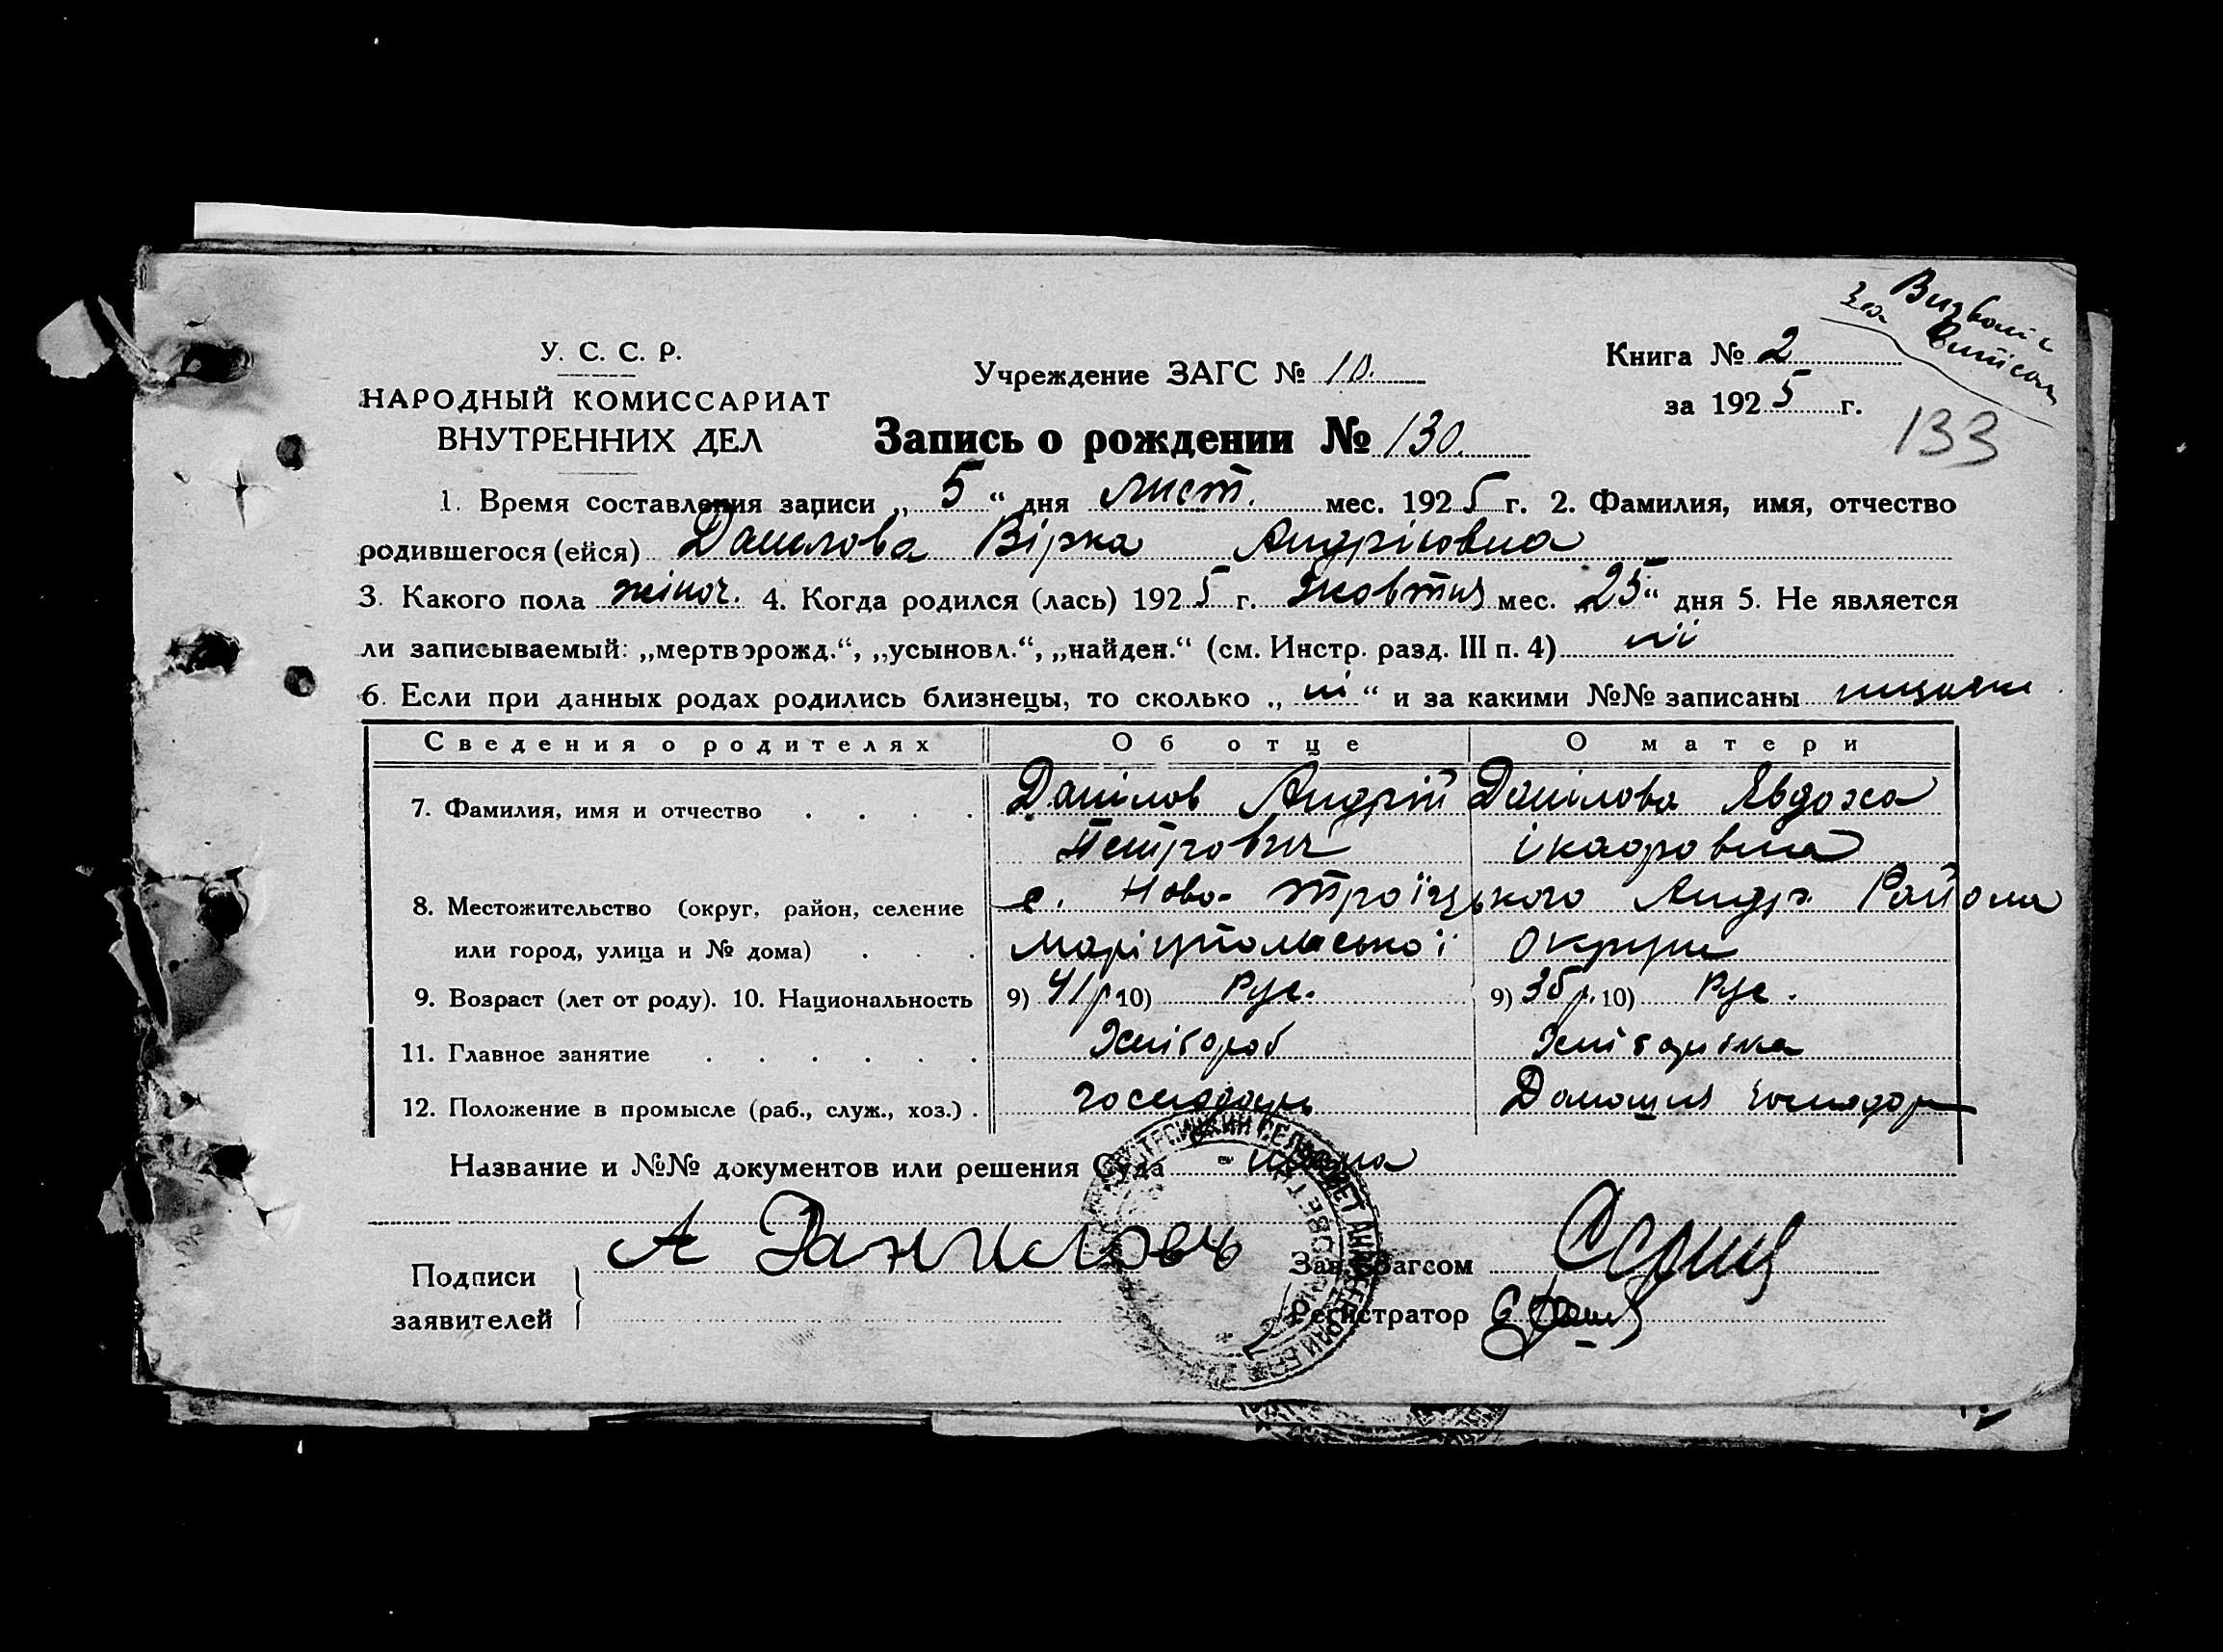 Визвані
за витісом
У. С. С. Р.
НАРОДНЫЙ КОМИССАРИАТ
ВНУТРЕННИХ ДЕЛ
Учреждение ЗАГС № 10.
Книга № 2
за 1925 г.
Запись о рождении № 130.
133
1. Время составления записи „5“ дня лист. мес. 1925 г. 2. Фамилия, имя, отчество
родившегося (ейся) Данілова Вірка Андріювна
3. Какого пола жіноч. 4. Когда родился (лась) 1925 г. Жовтня мес. „25“ дня 5. Не является
ли записываемый: „мертворожд.“, „усыновл.“, „найден.“ (см. Инстр. разд. III п. 4) ні
6. Если при данных родах родились близнецы, то сколько „ні“ и за какими №№ записаны
Сведения о родителях Об отце О матери
7. Фамилия, имя и отчество . . . . Данілов Андрій Данілова Явдоха
Петрович
8. Местожительство (округ, район, селение с. Ново-Троїцького Андр. Района
или город, улица и № дома) . . . Маріупольської Округи
9. Возраст (лет от роду). 10. Национальность 9) 41 р 10) Рус. 9) 36 р. 10) Рус.
11. Главное занятие . . . . . . Хлібороб Хліборобка
12. Положение в промысле (раб., служ., хоз.) . господарь Домашня господар
Название и №№ документов или решения Суда - нема
Подписи
заявителей
А Даниловъ
Зав. Загсом
Регистратор